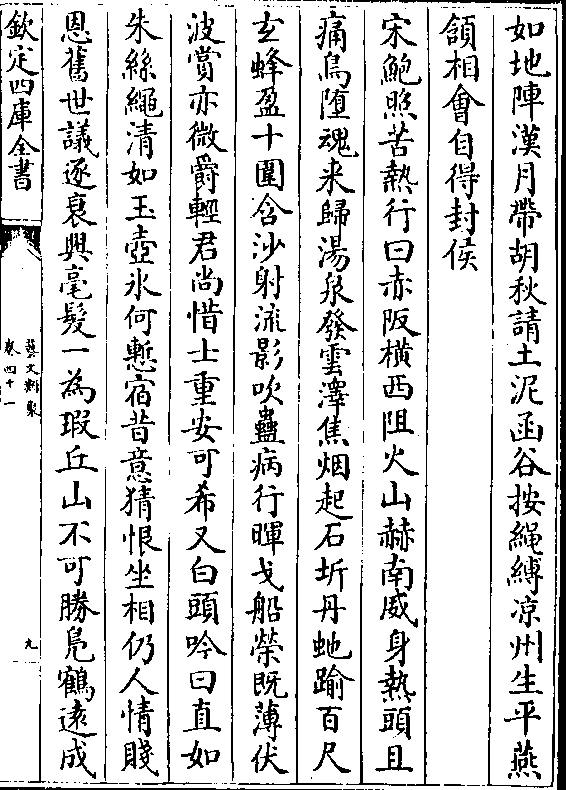 如地陣漢月帶胡秋請土泥函谷按繩縛凉州生平燕
頷相會自得封侯
宋鮑照苦熱行曰赤阪橫西阻火山赫南威身熱頭且
痛鳥墮魂来歸湯泉發雲潭焦烟起石圻丹虵踰百尺
玄蜂盈十圍含沙射流影吹蠱病行暉戈船榮既薄伏
波賞亦微爵輕君尚惜士重安可希又白頭吟曰直如
朱絲繩清如玉壺氷何慙宿昔意猜恨坐相仍人情賤
恩舊世議逐衰興毫髮一為瑕丘山不可勝鳬鶴遠成
欽定四庫全書
藝文類聚
卷四十一
九